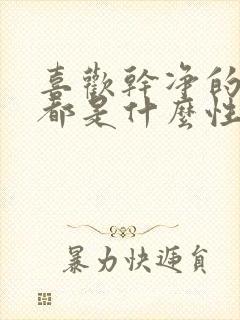 喜歡幹净的
都是什麼性
暴力快遞員